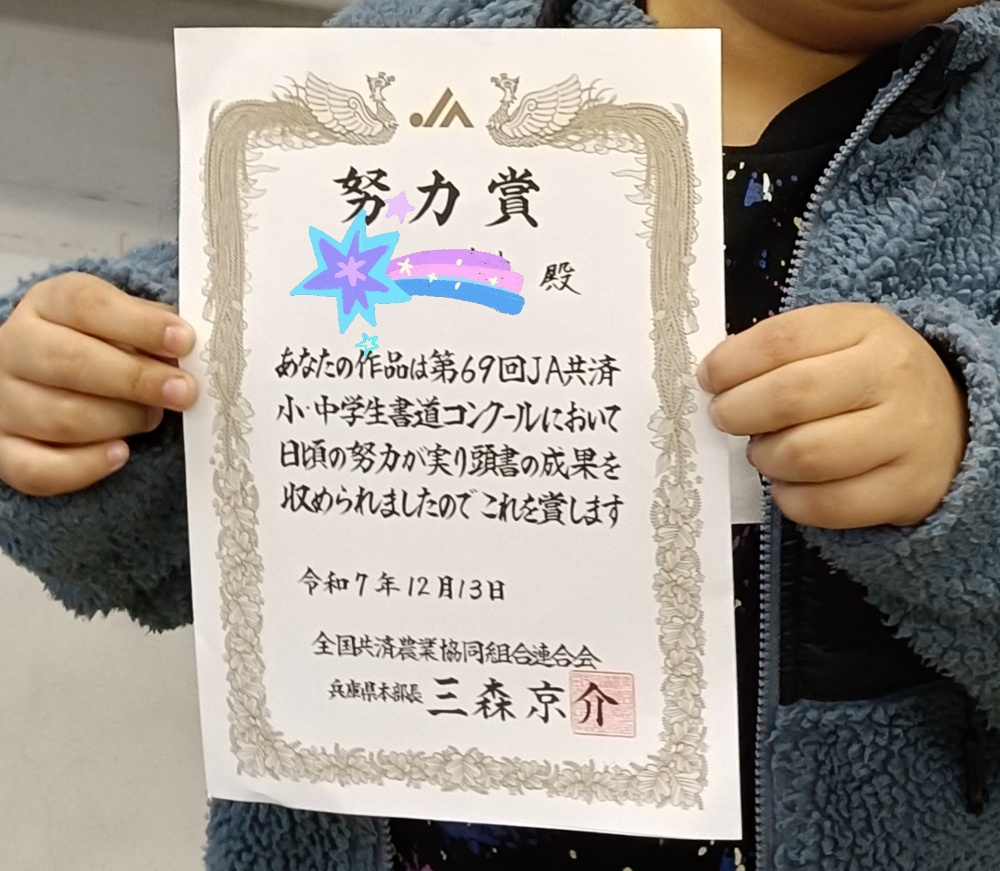 努力賞
殿
あなたの作品は第69回JA共済
小・中学生書道コンクールにおいて
日頃の努力が実り頭書の成果を
収められましたのでこれを賞します
令和7年12月13日
全国共済農業協同組合連合会
兵庫県本部長 三森京介